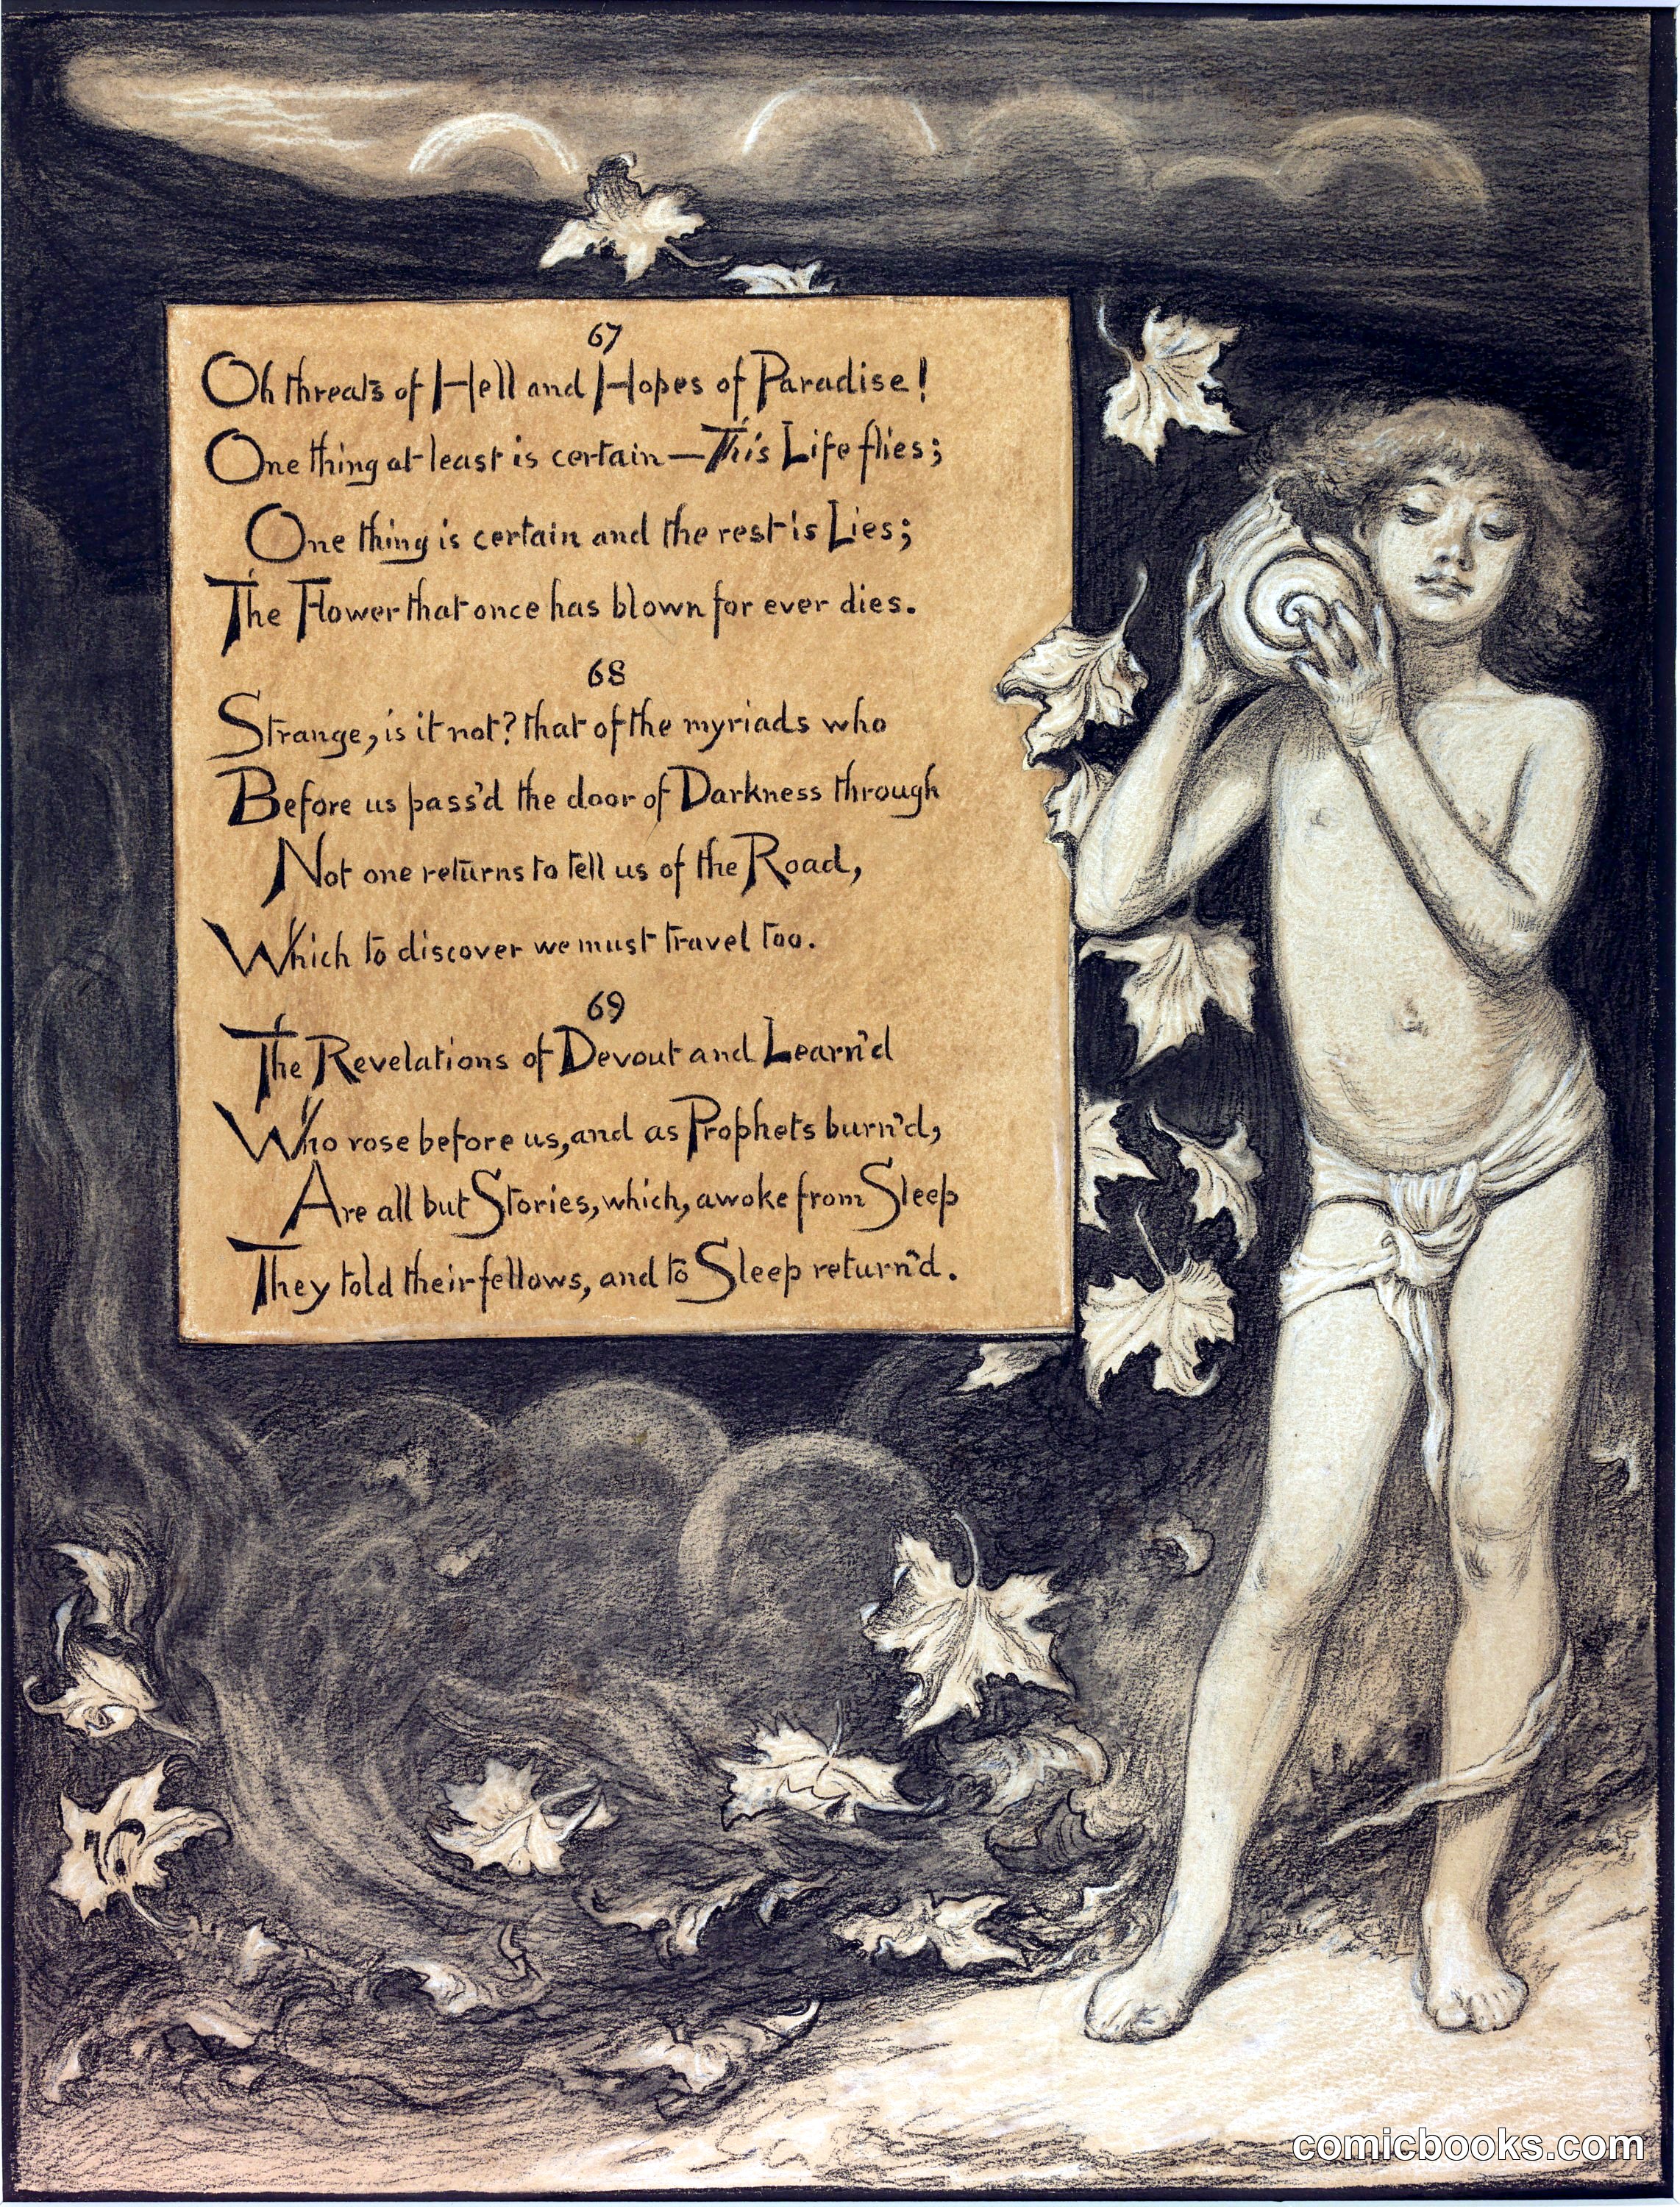 67
Oh threats of Hell and Hopes of Paradise!
One thing at least is certain — This Life flies;
One thing is certain and the rest is Lies;
The Flower that once has blown for ever dies.
68
Strange, is it not? that of the myriads who
Before us pass'd the door of Darkness through
Not one returns to tell us of the Road,
Which to discover we must travel too.
69
The Revelations of Devout and Learn'd
Who rose before us, and as Prophets burn'd,
Are all but Stories, which, awoke from Sleep
They told their fellows, and to Sleep return'd.
comicbooks.com